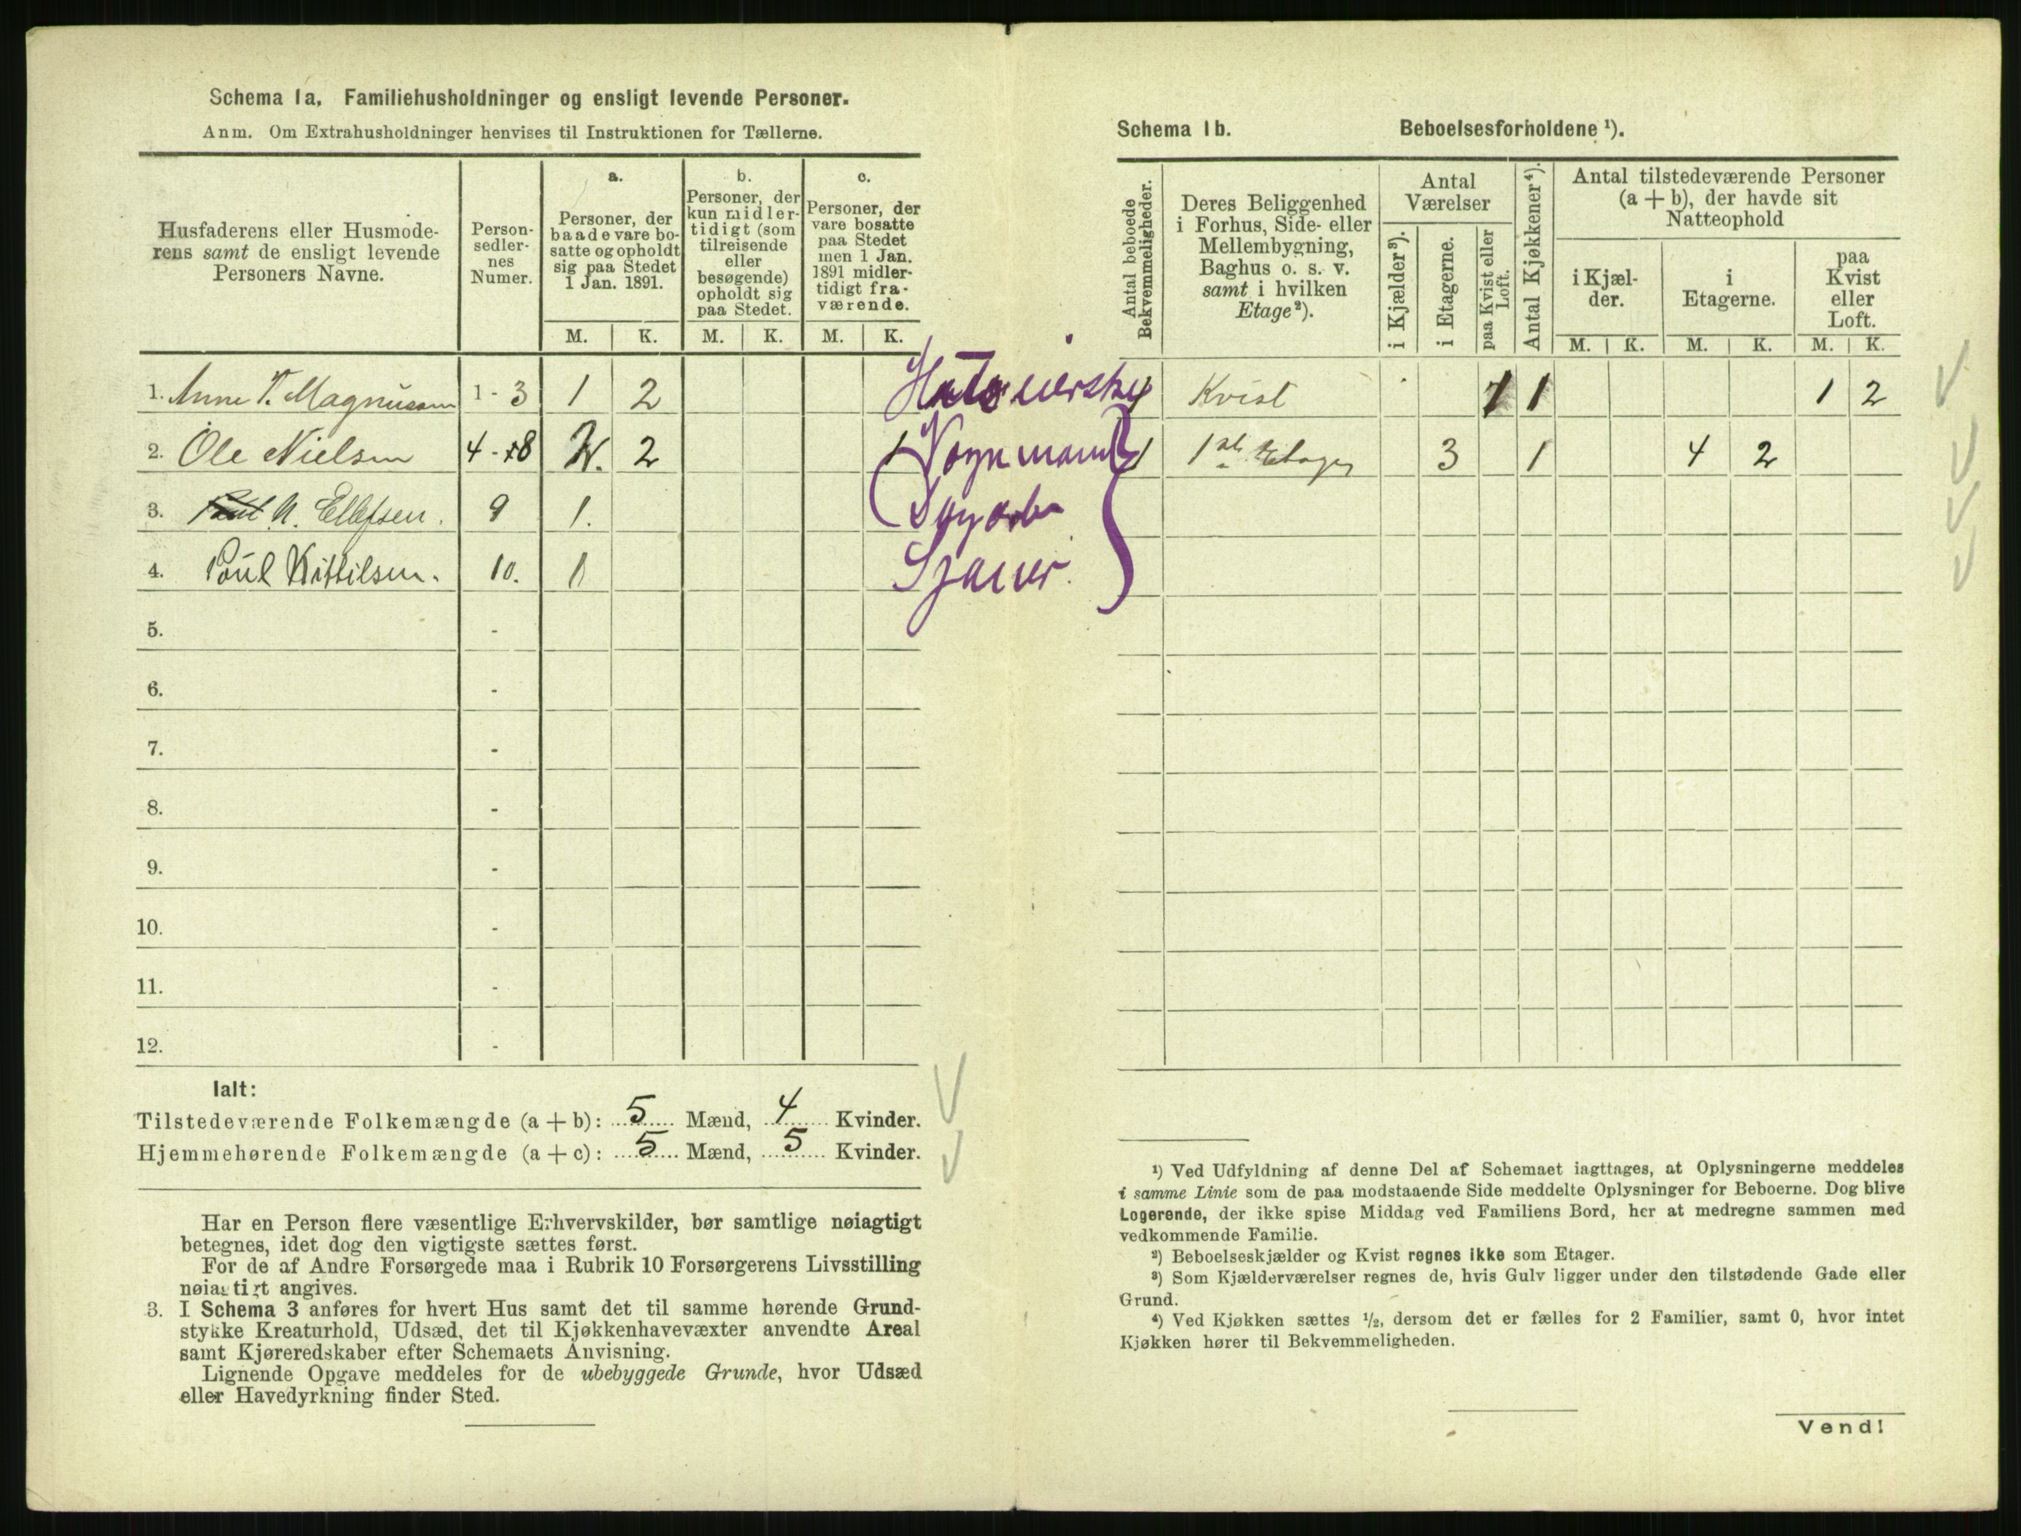 Schema 1a. Familiehusholdninger og ensligt levende Personer.
Anm. Om Extrahusholdninger henvises til Instruktionen for Tællerne.
Husfaderens eller Husmode-
rens samt de ensligt levende
Personers Navne.
Person-
sedler-
nes
Numer.
a.
Personer, der
baade vare bo-
satte og opholdt
sig paa Stedet
1 Jan. 1891.
b.
Personer, der
kun midler-
tidigt (som
tilreisende
eller
besøgende)
opholdt sig
paa Stedet.
c.
Personer, der
vare bosatte
paa Stedet
men 1 Jan.
1891 midler-
tidigt fra-
værende.
M. K. M. K. M. K.
1. Anne T. Magnussen 1 - 3 1 2
2. Ole Nielsen 4 - 8 2 1
3. N. Ellefsen. 9 1.
4. Poul Kittilsen. 10. 1
5. -
6. -
7. -
8. -
9. -
10. -
11. -
12. -
Vognmand
Sjauer.
Ialt:
Tilstedeværende Folkemængde (a + b): 5 Mænd, 4 Kvinder.
Hjemmehørende Folkemængde (a + c): 5 Mænd, 5 Kvinder.
Har en Person flere væsentlige Erhvervskilder, bør samtlige nøiagtigt
betegnes, idet dog den vigtigste sættes først.
For de af Andre Forsørgede maa i Rubrik 10 Forsørgerens Livsstilling
nøiagtigt angives.
3. I Schema 3 anføres for hvert Hus samt det til samme hørende Grund-
stykke Kreaturhold, Udsæd, det til Kjøkkenhavevæxter anvendte Areal
samt Kjøreredskaber efter Schemaets Anvisning.
Lignende Opgave meddeles for de ubebyggede Grunde, hvor Udsæd
eller Havedyrkning finder Sted.
Schema 1b. Beboelsesforholdene ¹).
Antal beboede
Bekvemmeligheder.
Deres Beliggenhed
i Forhus, Side- eller
Mellembygning,
Baghus o. s. v.
samt i hvilken
Etage²).
Antal
Værelser
i Kjælder³).
i Etagerne.
paa Kvist eller
Loft.
Antal Kjøkkener⁴).
Antal tilstedeværende Personer
(a + b), der havde sit
Natteophold
i Kjæl-
der.
i
Etagerne.
paa
Kvist
eller
Loft.
M. K. M. K. M. K.
1 Kvist 1 1 1 2
1 1ste Etage 3 1 4 2
¹) Ved Udfyldning af denne Del af Schemaet iagttages, at Oplysningerne meddeles
i samme Linie som de paa modstaaende Side meddelte Oplysninger for Beboerne. Dog blive
Logerende, der ikke spise Middag ved Familiens Bord, her at medregne sammen med
vedkommende Familie.
²) Beboelseskjælder og Kvist regnes ikke som Etager.
³) Som Kjælderværelser regnes de, hvis Gulv ligger under den tilstødende Gade eller
Grund.
⁴) Ved Kjøkken sættes ½, dersom det er fælles for 2 Familier, samt 0, hvor intet
Kjøkken hører til Bekvemmeligheden.
Vend!